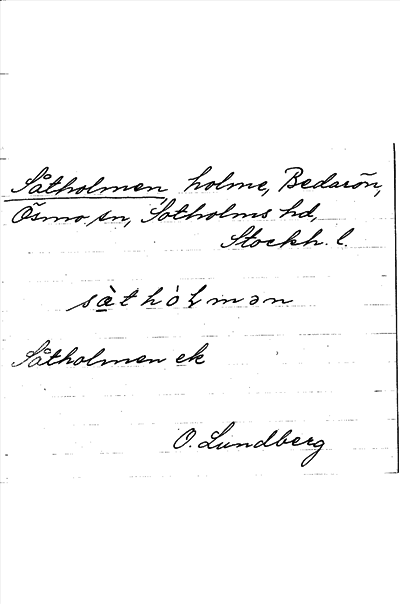 Såtholmen, holme, Bedarön,
Ösmo sn, Sotholms hd,
Stockh. l.
sàt hòlmən
Såtholmen ek
O. Lundberg